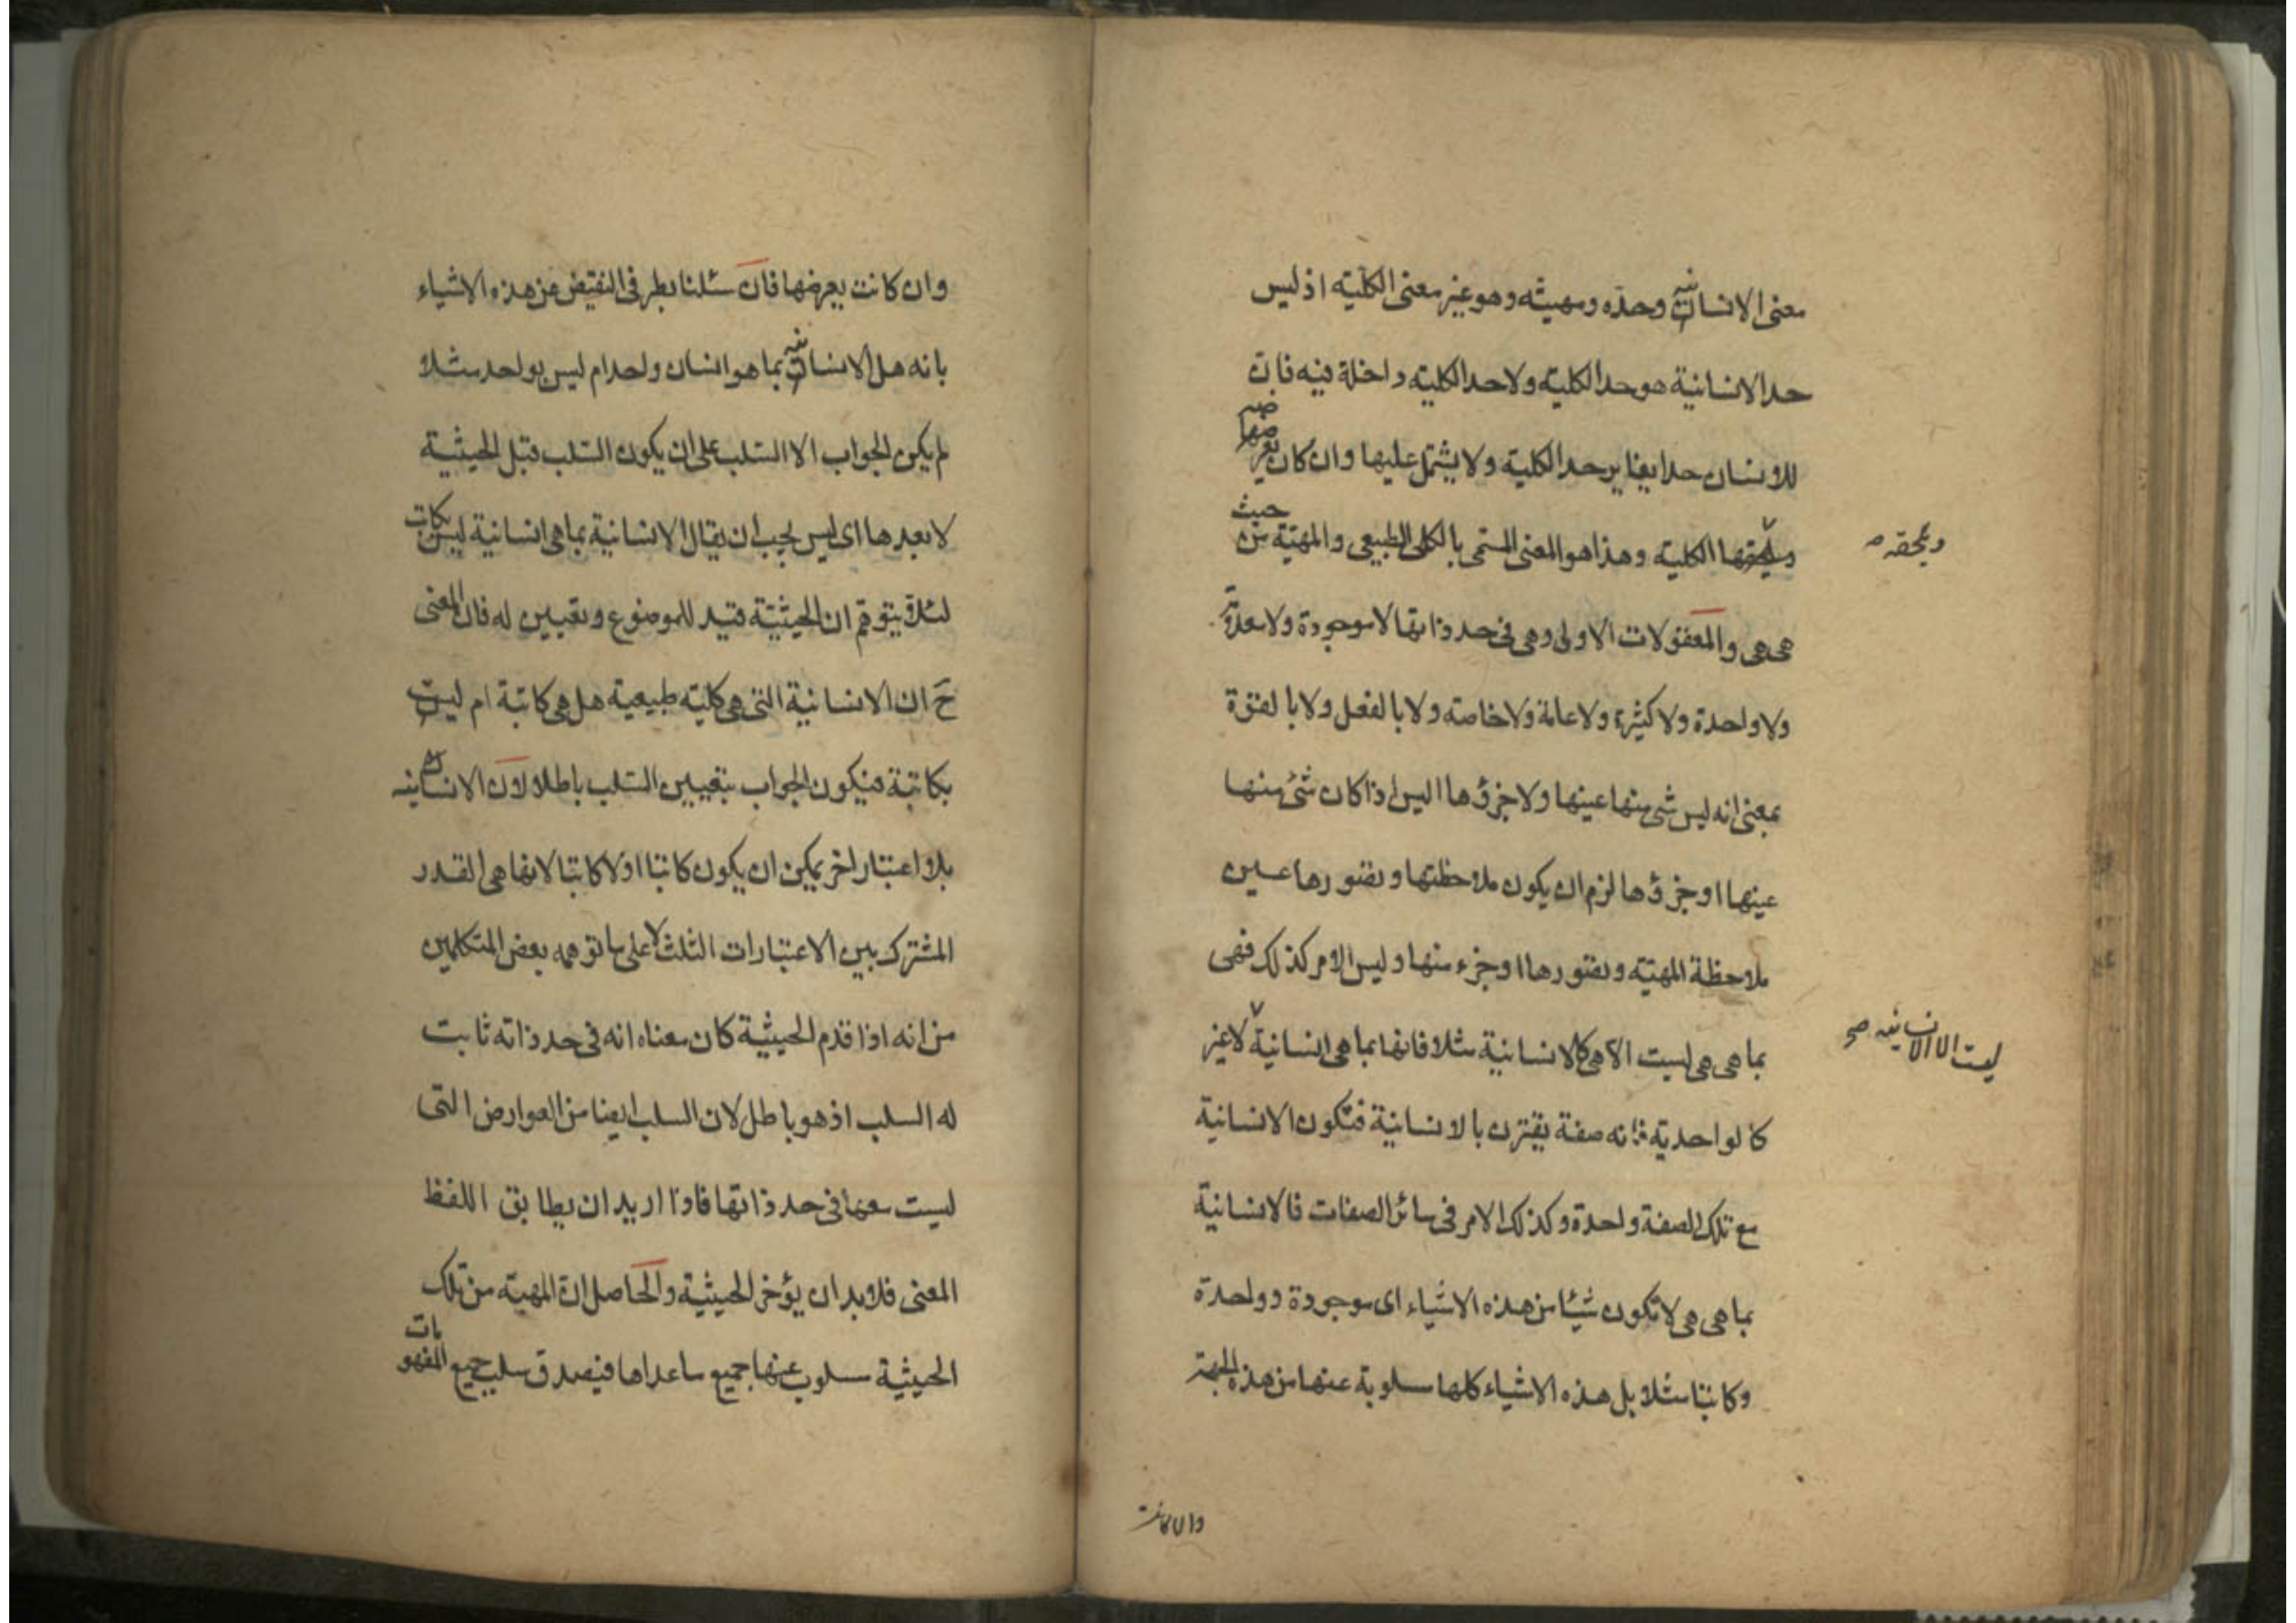 معنى الانسانية وحده ومهيته وهو غير معنى الكلية اذ ليس
حد الانسانية هو حد الكلية ولا حد الكلية داخلة فيه فان
للانسان حدا يغاير حد الكلية ولا يشتمل عليها وان كان يعرضه
ويلحقها الكلية وهذا هو المعنى المسمى بالكلى الطبيعى والمهية من حيث
ويلحقه
هى هى والمعقولات الاولى وهى فى حد ذاتها لا موجودة ولا معدومة
ولا واحدة ولا كثيرة ولا عامة ولا خاصة ولا بالفعل ولا بالقوة
بمعنى انه ليس شئ منها عينها ولا جزؤها اليس اذا كان شئ منها
عينها او جزؤها لزم ان يكون ملاحظتها وتصورها عين
ملاحظة المهية وتصورها او جزء منها وليس الامر كذلك فهى
بما هى هى ليست الا هى كالانسانية مثلا فانها بما هى انسانية لا غير
ليست الا الانسانية صح
كالواحدية فانه صفة يقترن بالانسانية فتكون الانسانية
مع تلك الصفة واحدة وكذلك الامر فى سائر الصفات فالانسانية
بما هى هى لا تكون شيئا من هذه الاشياء اى موجودة وواحدة
وكاتبا مثلا بل هذه الاشياء كلها مسلوبة عنها من هذه الجهة
وان كانت
وان كانت يعرضها فان سئلنا بطرفى النقيض عن هذه الاشياء
بانه هل الانسانية بما هو انسان واحد ام ليس بواحد مثلا
لم يكن الجواب الا السلب على ان يكون السلب قبل الحيثية
لا بعدها اى ليس يجب ان يقال الانسانية بما هى انسانية ليس بكاتب
لئلا يتوهم ان الحيثية قيد للموضوع وتعيين له فان المعنى
ح ان الانسانية التى هى كلية طبيعية هل هى كاتبة ام ليست
بكاتبة فيكون الجواب بتعيين السلب باطلا لان الانسانية
بلا اعتبار اخر يمكن ان يكون كاتبا او لا كاتبا لانها هى القدر
المشترك بين الاعتبارات الثلث لا على ما توهمه بعض المتكلمين
من انه اذا قدم الحيثية كان معناه انه فى حد ذاته ثابت
له السلب اذ هو باطل لان السلب ايضا من العوارض التى
ليست معها فى حد ذاتها فاذا اريد ان يطابق اللفظ
المعنى فلا بد ان يؤخر الحيثية والحاصل ان المهية من تلك
الحيثية مسلوب عنها جميع ما عداها فيصدق سلب جميع المفهومات